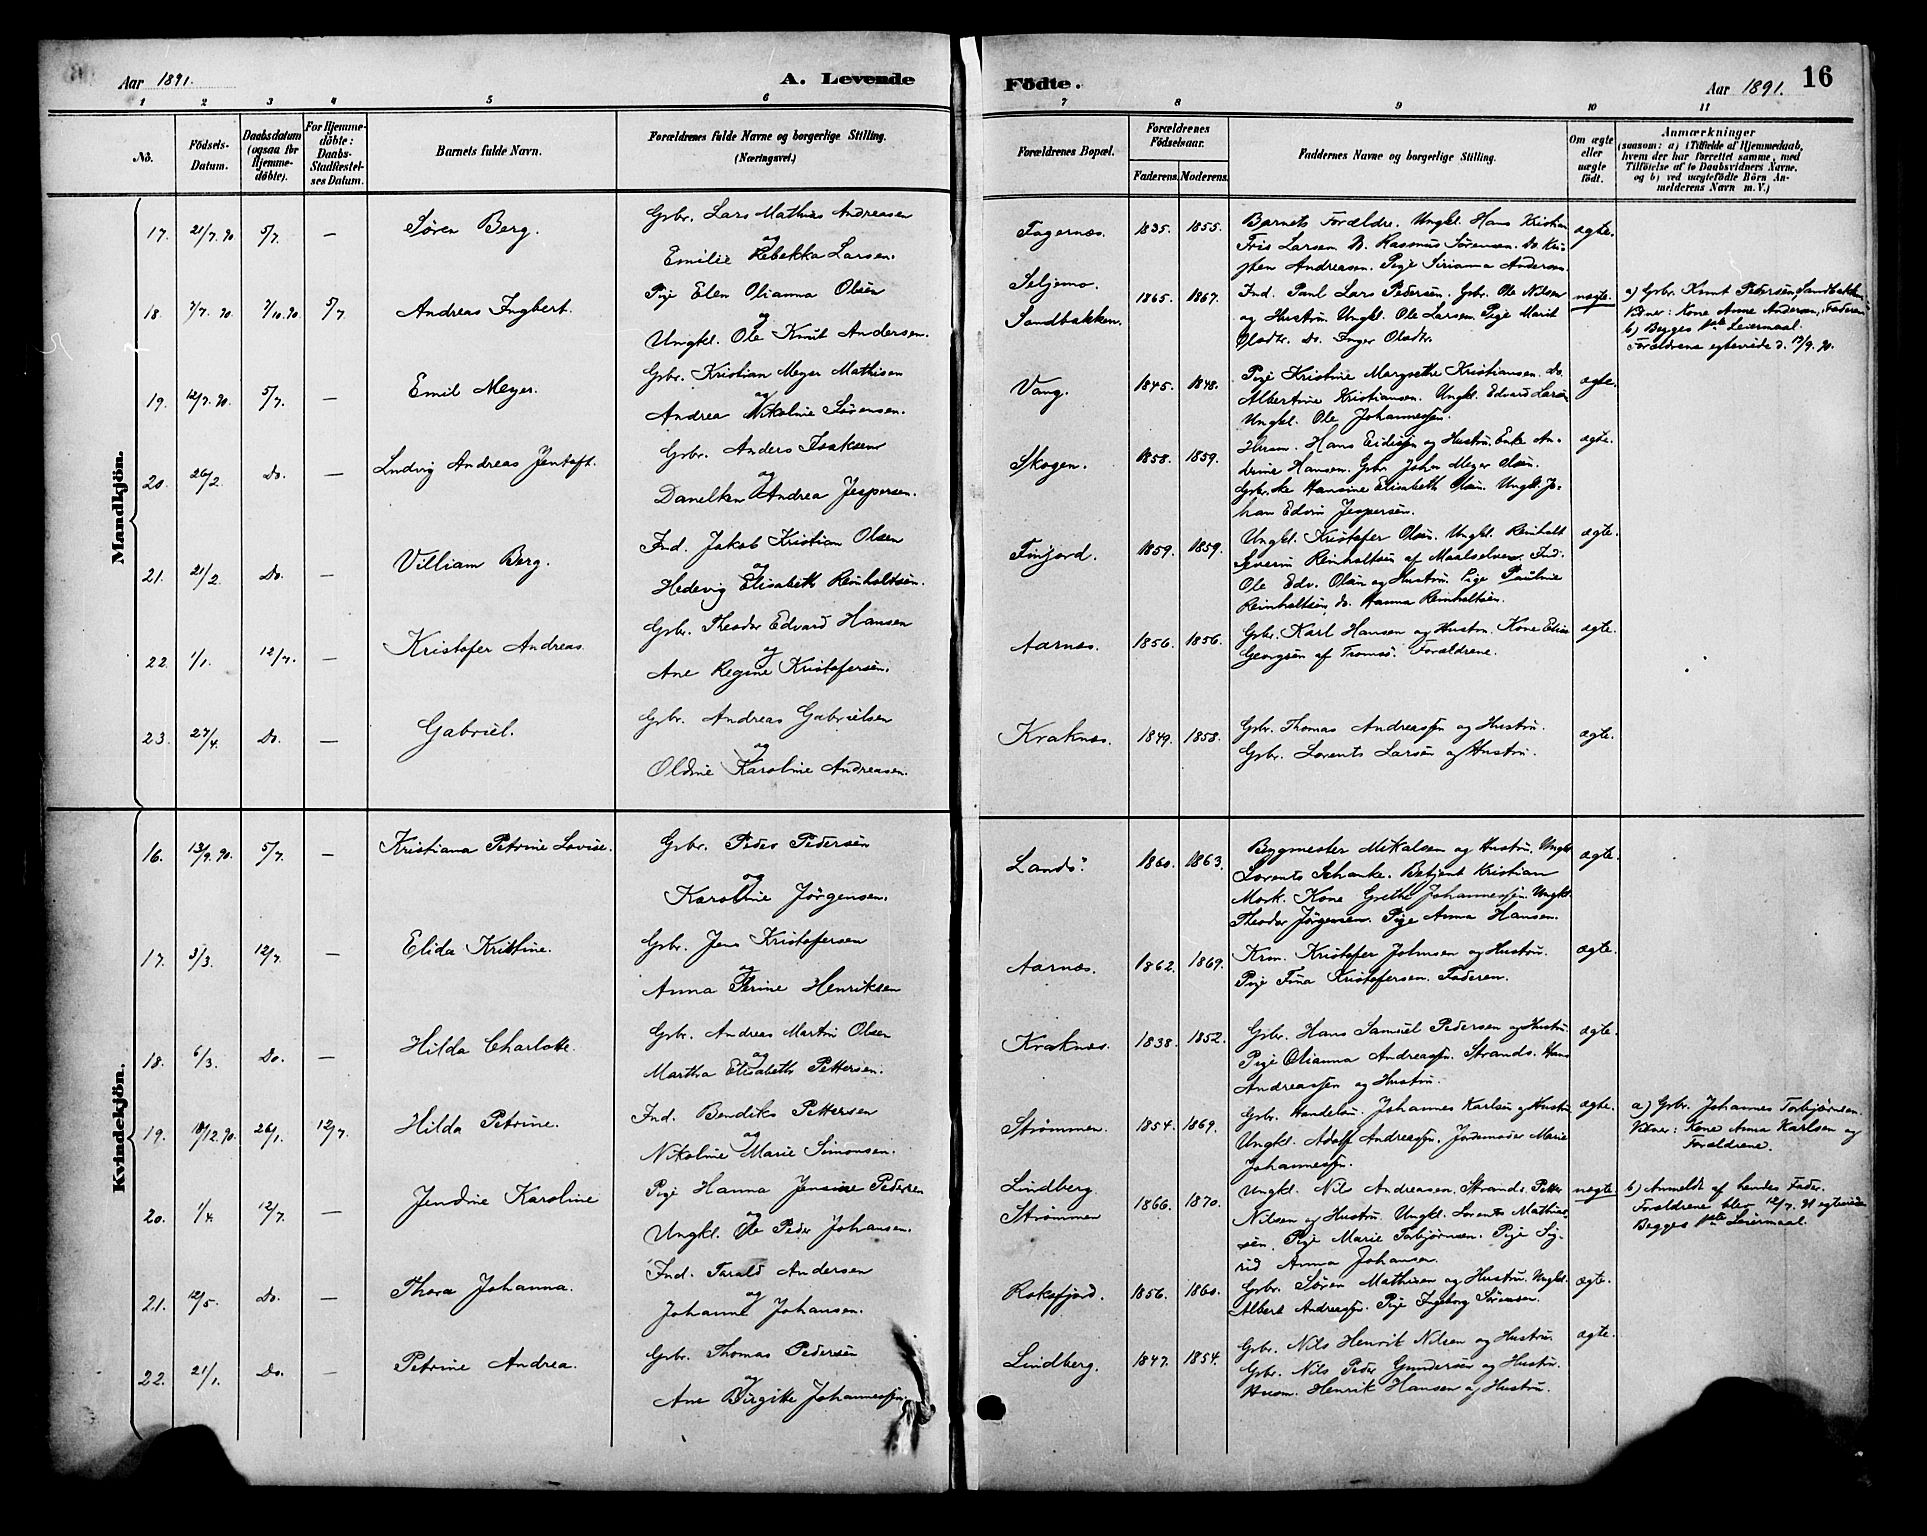 Aar 1891.
A. Levende
Födte.
Aar 1891.
16
1 2 3 4 5 6 7 8 9 10 11
No.
Födsels-Datum.
Daabsdatum (ogsaa for Hjemmedöbte).
For Hjemmedöbte: Daabs-Stadfæstelses Datum.
Barnets fulde Navn.
Forældrenes fulde Navne og borgerlige Stilling.
(Næringsvei.)
Forældrenes Bopæl.
Forældrenes Födselsaar.
Faderens. Moderens.
Faddernes Navne og borgerlige Stilling.
Om ægte eller uægte födt.
Anmærkninger
(saasom: a) i Tilfælde af Hjemmedaab,
hvem der har forrettet samme, med
Tilföielse af to Daabsvidners Navne,
og b) ved uægtefödte Börn An-
melderens Navn m. V.)
Mandkjön.
17. 21/7. 90. 5/7. — Søren Berg. Gbr. Lars Mathias Andreasen
og
Emilie Rebekka Larsen.
Fagernæs. 1835. 1855. Barnets Forældre. Ungkl. Hans Kristian
Friis Larsen. Do. Rasmus Sørensen. Do. Kri-
sten Andreasen. Pige Sirianna Andersen.
ægte.
18. 7/7. 90. 7/10. 90. 5/7. Andreas Ingbert. Pige Elen Olianna Olsen
og
Ungkl. Ole Knut Andersen.
Seljemo.
Sandbakken. 1865. 1867. Ind. Paul Lars Pedersen. Gbr. Ole Nilsen
og Hustru. Ungkl. Ole Larsen. Pige Marit
Olsdtr. Do. Inger Olsdtr.
uægte.
a) Gbr. Knut Pedersen, Sandbakken
Vidner: Kone Anne Andersen, Faderen
b) Begges 1ste Leiermaal.
Forældrene egteviede d. 13/9. 90.
19. 12/7. 90. 5/7. — Emil Meyer. Gbr. Kristian Meyer Mathisen
og
Andrea Nikoline Sørensen.
Vang. 1845. 1848. Pige Kristine Margrethe Kristiansen. do.
Albertine Kristiansen. Ungkl. Edvard Larsen
Ungkl. Ole Johannessen.
ægte.
20. 26/2. Do. — Ludvig Andreas Jentoft. Gbr. Anders Isaksen
og
Danelken Andrea Jespersen.
Skogen. 1858. 1859. Husm. Hans Eidissen og Hustru. Enke An-
drine Hansen. Gbr. Johan Meyer Olsen.
Gbr.ske Hansine Elisabeth Olsen. Ungkl. Jo-
han Edvin Jespersen.
ægte.
21. 21/2. Do. — Villiam Berg. Ind. Jakob Kristian Olsen
og
Hedevig Elisabeth Reinholtsen.
Finfjord. 1859. 1859. Ungkl. Kristofer Olsen. Ungkl. Reinholt
Severin Reinholtsen af Maalselven. Ind.
Ole Edv. Olsen og Hustru. Pige Pauline
Reinholtsen, do. Hanna Reinholtsen.
ægte.
22. 1/1. 12/7. — Kristofer Andreas. Gbr. Theodor Edvard Hansen
og
Ane Regine Kristofersen.
Aarnæs. 1856. 1856. Gbr. Karl Hansen og Hustru. Kone Elise
Georgsen af Tromsö. Forældrene.
ægte.
23. 27/4. Do. — Gabriel. Gbr. Andreas Gabrielsen
og
Oldine Karoline Andreasen.
Kraknæs. 1849. 1858. Gbr. Thomas Andreassen og Hustru.
Gbr. Lorents Larsen og Hustru.
ægte.
Kvindekjön.
16. 13/9. 90. 5/7. — Kristiana Petrine Lovise. Gbr. Peder Pedersen
og
Karoline Jørgensen.
Lands. 1860. 1863. Bygmester Mikalsen og Hustru. Ungkl.
Lorents Schanke. Betjent Kristian
Mork. Kone Grethe Johannessen. Ungkl.
Theodor Jørgensen. Pige Anna Hansen.
ægte.
17. 3/3. 12/7. — Elida Kristine. Gbr. Jens Kristofersen
og
Anna Serine Henriksen
Aarnæs. 1862. 1869. Krm. Kristofer Johnsen og Hustru.
Pige Fina Kristofersen. Faderen.
ægte.
18. 6/3. Do. — Hilda Charlotte. Gbr. Andreas Martin Olsen
og
Martha Elisabeth Pettersen.
Kraknæs. 1838. 1852. Gbr. Hans Samuel Pedersen og Hustru
Pige Olianna Andreassen. Strands. Hans
Andreassen og Hustru.
ægte.
19. 18/12. 90. 26/1. 12/7. Hilda Petrine. Ind. Bendiks Pettersen
og
Nikoline Marie Simonsen.
Strømmen. 1854. 1869. Gbr. Handelsm. Johannes Karlsen og Hustru
Ungkl. Adolf Andreassen. Jordemoder Marie
Johannessen.
ægte.
a) Gbr. Johannes Torbjørnsen.
Vidner: Kone Anna Karlsen og
Forældrene.
20. 1/4. 12/7. — Jendine Karoline Pige Hanna Jensine Pedersen
og
Ungkl. Ole Peder Johansen.
Lindberg
Strømmen 1866. 1870. Ungkl. Nils Andreasen. Strands. Petter
Nilsen og Hustru. Ungkl. Lorents Mathias-
sen. Pige Marie Torbjørnsen. Pige Sig-
rid Anna Johansen.
uægte.
b) Anmeldt af hendes Fader.
Forældrene blev 12/7. 91 egteviede
Begges 1ste Leiermaal.
21. 12/5. Do. — Thora Johanna. Ind. Tarald Andersen
og
Johanne Johansen.
Roksfjord. 1856. 1860. Gbr. Søren Mathisen og Hustru. Ungkl.
Albert Andreassen. Pige Ingeborg Sørensen.
ægte.
22. 21/1. Do. — Petrine Andrea. Gbr. Thomas Pedersen
og
Ane Birgitte Johannessen.
Lindberg. 1847. 1854. Gbr. Nils Henrik Nilsen og Hustru.
Gbr. Nils Peder Gundersen og Hustru.
Husm. Henrik Hansen og Hustru.
ægte.